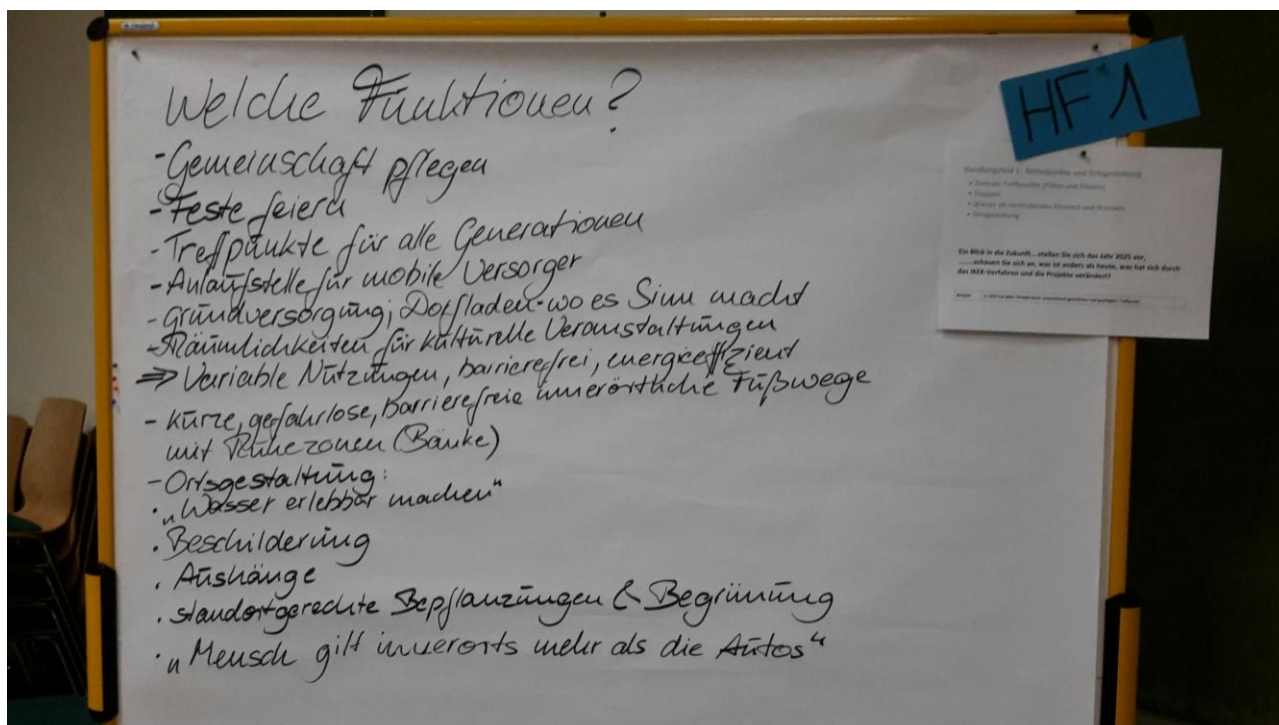 Welche Funktionen?
- Gemeinschaft pflegen
- Feste feiern
- Treffpunkte für alle Generationen
- Anlaufstelle für mobile Versorger
- Grundversorgung; Dorfladen - wo es Sinn macht
- Räumlichkeiten für kulturelle Veranstaltungen
=> Variable Nutzungen, barrierefrei, energieeffizient
- kurze, gefahrlose, barrierefreie innerörtliche Fußwege
mit Ruhezonen (Bänke)
- Ortsgestaltung:
• „Wasser erlebbar machen“
• Beschilderung
• Aushänge
• standortgerechte Bepflanzungen & Begrünung
• „Mensch gilt innerorts mehr als die Autos“
HF 1
Handlungsfeld 1: Mittelpunkte und Ortsgestaltung
• Zentrale Treffpunkte (Plätze und Räume)
• Treppen
• Wasser als verbindendes Element und Brunnen
• Ortsgestaltung
Ein Blick in die Zukunft....stellen Sie sich das Jahr 2025 vor,
........schauen Sie sich an, was ist anders als heute, was hat sich durch
das IKEK-Verfahren und die Projekte verändert?